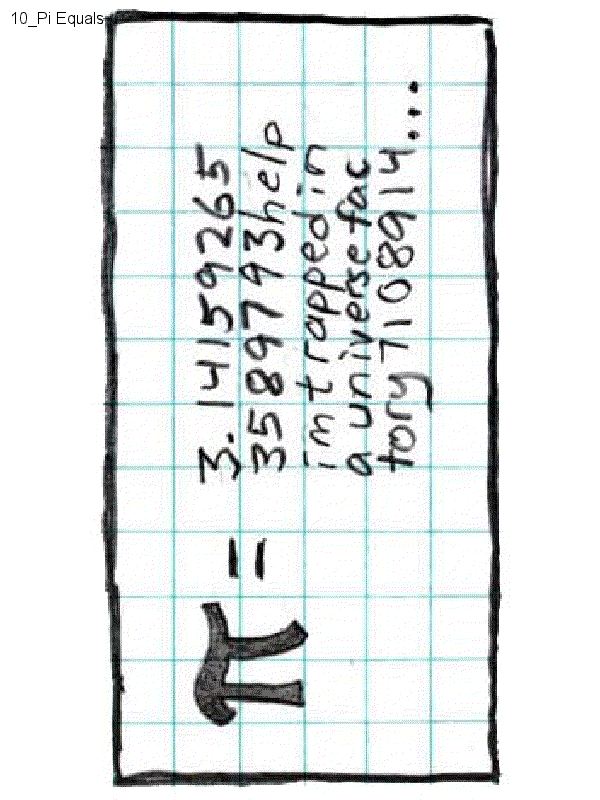 10_Pi Equals
π = 3.14159265
358979 3help
imtrapped in
auniversefac
tory 7108914...